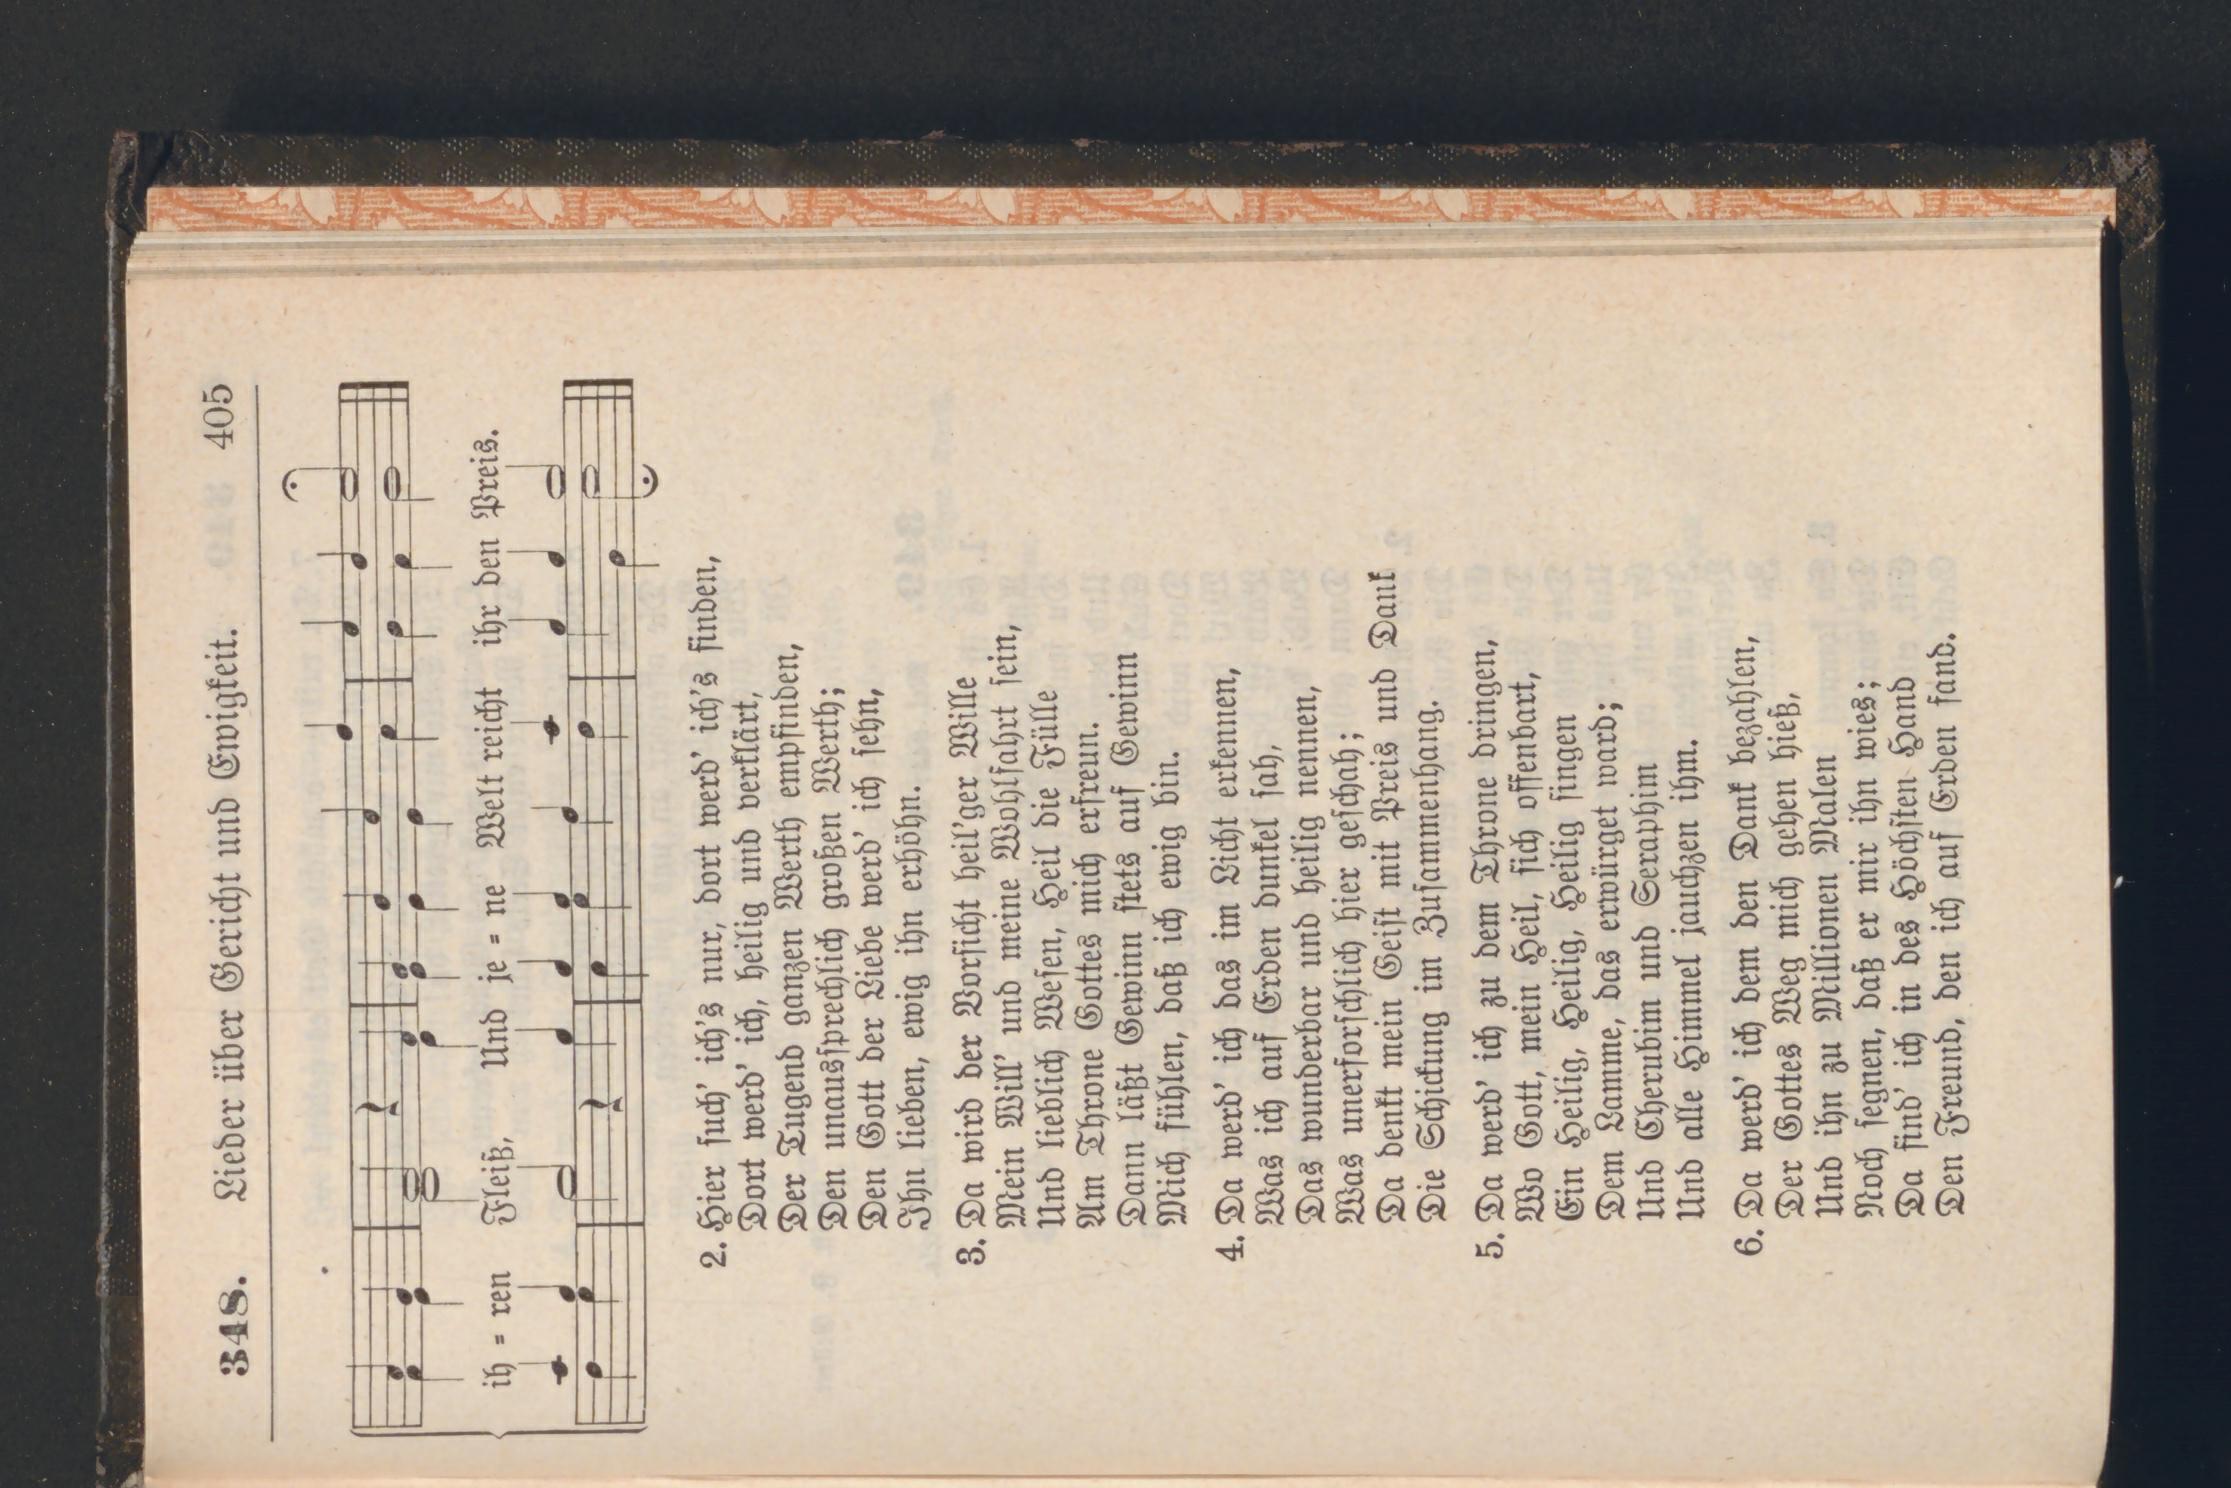 348. Lieder über Gericht und Ewigkeit. 405
ih = ren Fleiß, Und je = ne Welt reicht ihr den Preis.
2. Hier such' ich's nur, dort werd' ich's finden,
Dort werd' ich, heilig und verklärt,
Der Tugend ganzen Werth empfinden,
Den unaussprechlich großen Werth;
Den Gott der Liebe werd' ich sehn,
Ihn lieben, ewig ihn erhöhn.
3. Da wird der Vorsicht heil'ger Wille
Mein Will' und meine Wohlfahrt sein,
Und lieblich Wesen, Heil die Fülle
Am Throne Gottes mich erfreun.
Dann läßt Gewinn stets auf Gewinn
Mich fühlen, daß ich ewig bin.
4. Da werd' ich das im Licht erkennen,
Was ich auf Erden dunkel sah,
Das wunderbar und heilig nennen,
Was unerforschlich hier geschah;
Da denkt mein Geist mit Preis und Dank
Die Schickung im Zusammenhang.
5. Da werd' ich zu dem Throne dringen,
Wo Gott, mein Heil, sich offenbart,
Ein Heilig, Heilig, Heilig singen
Dem Lamme, das erwürget ward;
Und Cherubim und Seraphim
Und alle Himmel jauchzen ihm.
6. Da werd' ich dem den Dank bezahlen,
Der Gottes Weg mich gehen hieß,
Und ihn zu Millionen Malen
Noch segnen, daß er mir ihn wies;
Da find' ich in des Höchsten Hand
Den Freund, den ich auf Erden fand.